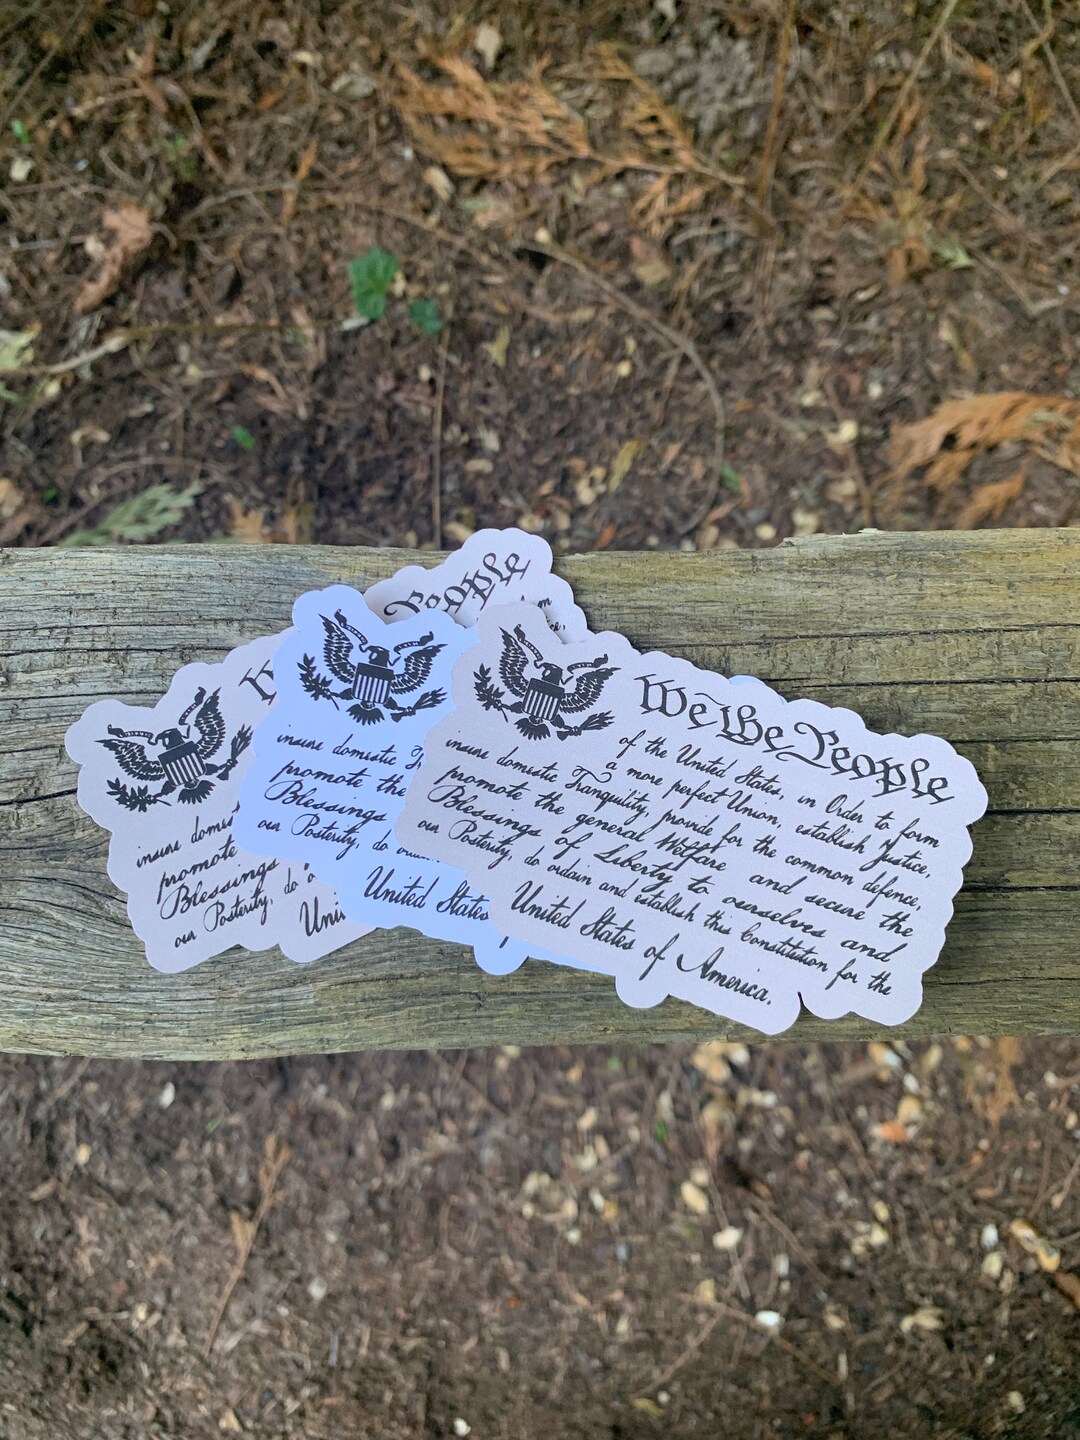 We the People
of the United States, in Order to form
a more perfect Union, establish Justice,
insure domestic Tranquility, provide for the common defence,
promote the general Welfare and secure the
Blessings of Liberty to ourselves and
our Posterity, do ordain and establish this Constitution for the
United States of America.
insure domestic T
promote the
Blessings
our Posterity, do
United States
People
insure domes
promote
Blessings
our Posterity, do o
Uni